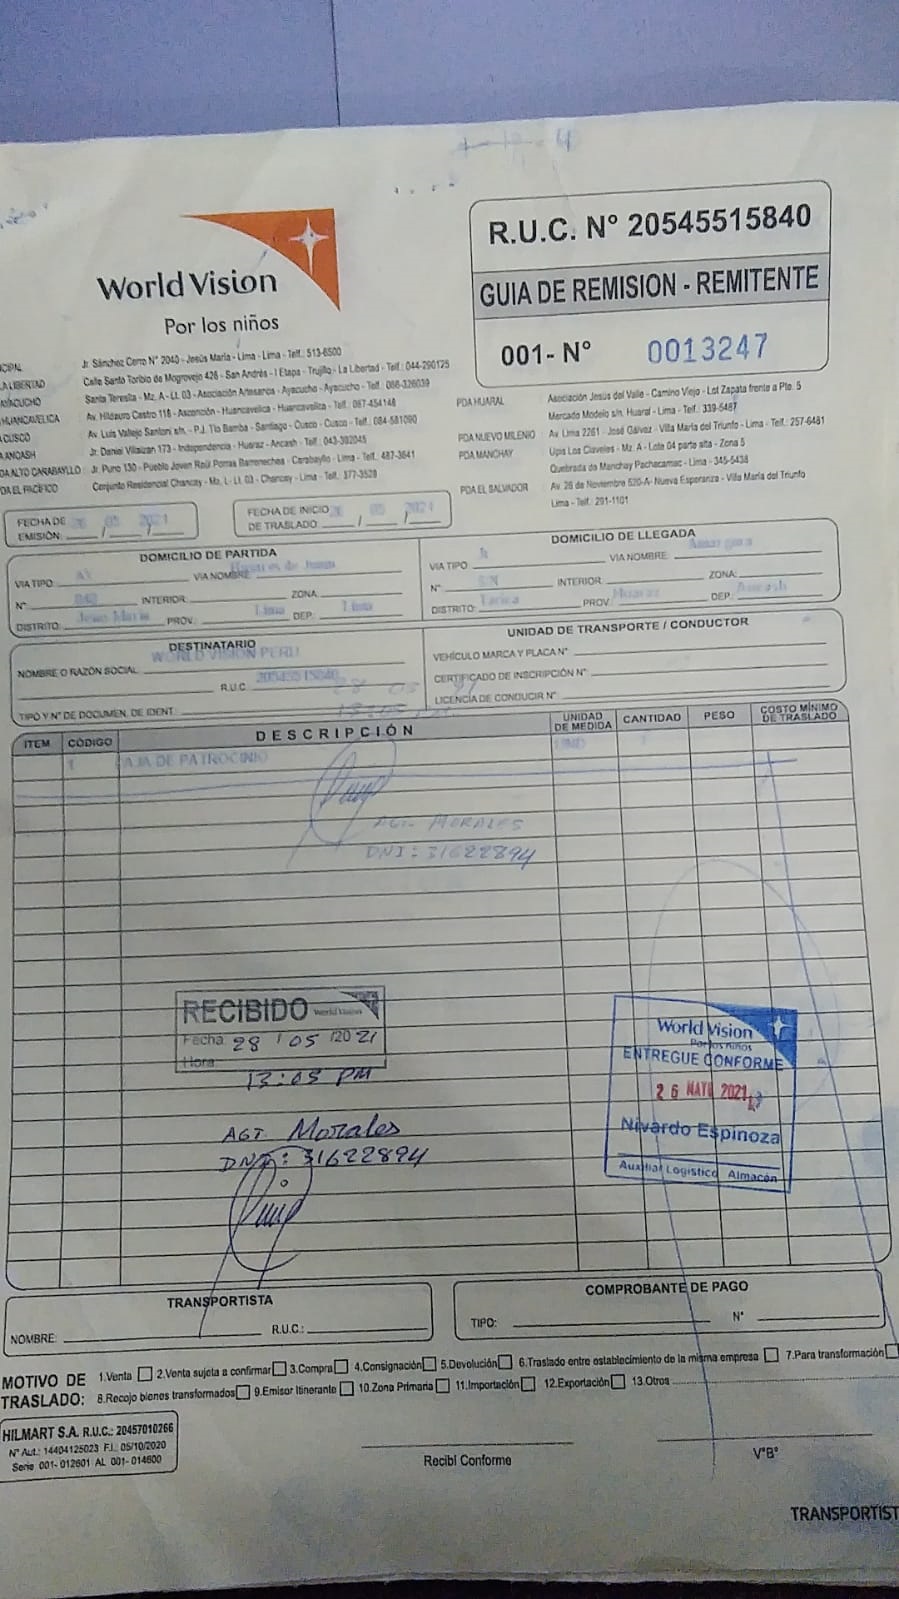 World Vision
Por los niños
R.U.C. N° 20545515840
GUIA DE REMISION - REMITENTE
001- N° 0013247
CIPAL Jr. Sánchez Cerro N° 2040 - Jesús María - Lima - Lima - Telf.: 513-6500
LA LIBERTAD Calle Santo Toribio de Mogrovejo 426 - San Andrés - I Etapa - Trujillo - La Libertad - Telf.: 044-290125
AYACUCHO Santa Teresita - Mz. A - Lt. 03 - Asociación Artesanos - Ayacucho - Ayacucho - Telf.: 066-326039
HUANCAVELICA Av. Hildauro Castro 118 - Ascención - Huancavelica - Huancavelica - Telf.: 067-454148
CUSCO Av. Luis Vallejo Santoni s/n. - P.J. Tio Bamba - Santiago - Cusco - Cusco - Telf.: 084-581090
ANCASH Jr. Daniel Villaizan 173 - Independencia - Huaraz - Ancash - Telf.: 043-392045
DA ALTO CARABAYLLO: Jr. Puno 130 - Pueblo Joven Raúl Porras Barrenechea - Carabayllo - Lima - Telf.: 487-3641
DA EL PACÍFICO Conjunto Residencial Chancay - Mz. L - Lt. 03 - Chancay - Lima - Telf.: 377-3528
PDA HUARAL Asociación Jesús del Valle - Camino Viejo - Lot Zapata frente a Pte. 5
Mercado Modelo s/n. Huaral - Lima - Telf.: 339-5487
PDA NUEVO MILENIO Av. Lima 2261 - José Gálvez - Villa María del Triunfo - Lima - Telf.: 257-6481
PDA MANCHAY Upis Los Claveles - Mz. A - Lote 04 parte alta - Zona 5
Quebrada de Manchay Pachacamac - Lima - 345-5438
PDA EL SALVADOR Av. 26 de Noviembre 520-A- Nueva Esperanza - Villa María del Triunfo
Lima - Telf.: 291-1101
FECHA DE EMISIÓN: 26 / 05 / 2021
FECHA DE INICIO DE TRASLADO: 26 / 05 / 2021
DOMICILIO DE PARTIDA
VIA TIPO: AV VIA NOMBRE: de Junin
N° INTERIOR: ZONA:
DISTRITO: Jesus Maria PROV.: Lima DEP.: Lima
DOMICILIO DE LLEGADA
VIA TIPO: Jr VIA NOMBRE:
N° S/N INTERIOR: ZONA:
DISTRITO: Tarica PROV.: Huaraz DEP.: Ancash
DESTINATARIO
WORLD VISION PERU
NOMBRE O RAZÓN SOCIAL:
R.U.C. 20545515840
TIPO Y N° DE DOCUMEN. DE IDENT.:
28 05 21
13:05 PM
UNIDAD DE TRANSPORTE / CONDUCTOR
VEHÍCULO MARCA Y PLACA N°
CERTIFICADO DE INSCRIPCIÓN N°
LICENCIA DE CONDUCIR N°
ITEM CÓDIGO DESCRIPCIÓN UNIDAD DE MEDIDA CANTIDAD PESO COSTO MÍNIMO DE TRASLADO
1 AJA DE PATROCINIO UND 1
AGT. MORALES
DNI: 31622894
RECIBIDO World Vision
Fecha: 28 / 05 /2021
Hora:
13:05 PM
AGT Morales
DNI: 31622894
World Vision
Por los niños
ENTREGUE CONFORME
26 MAYO 2021
Nivardo Espinoza
Auxiliar Logistico Almacén
TRANSPORTISTA
NOMBRE: R.U.C.:
COMPROBANTE DE PAGO
TIPO: N°
MOTIVO DE TRASLADO:
1.Venta 2.Venta sujeta a confirmar 3.Compra 4.Consignación 5.Devolución 6.Traslado entre establecimiento de la misma empresa 7.Para transformación
8.Recojo bienes transformados 9.Emisor Itinerante 10.Zona Primaria 11.Importación 12.Exportación 13.Otros
HILMART S.A. R.U.C.: 20457010266
N° Aut.: 14404125023 F.I.. 05/10/2020
Serie 001- 012601 AL 001- 014600
Recibí Conforme
V°B°
TRANSPORTIST